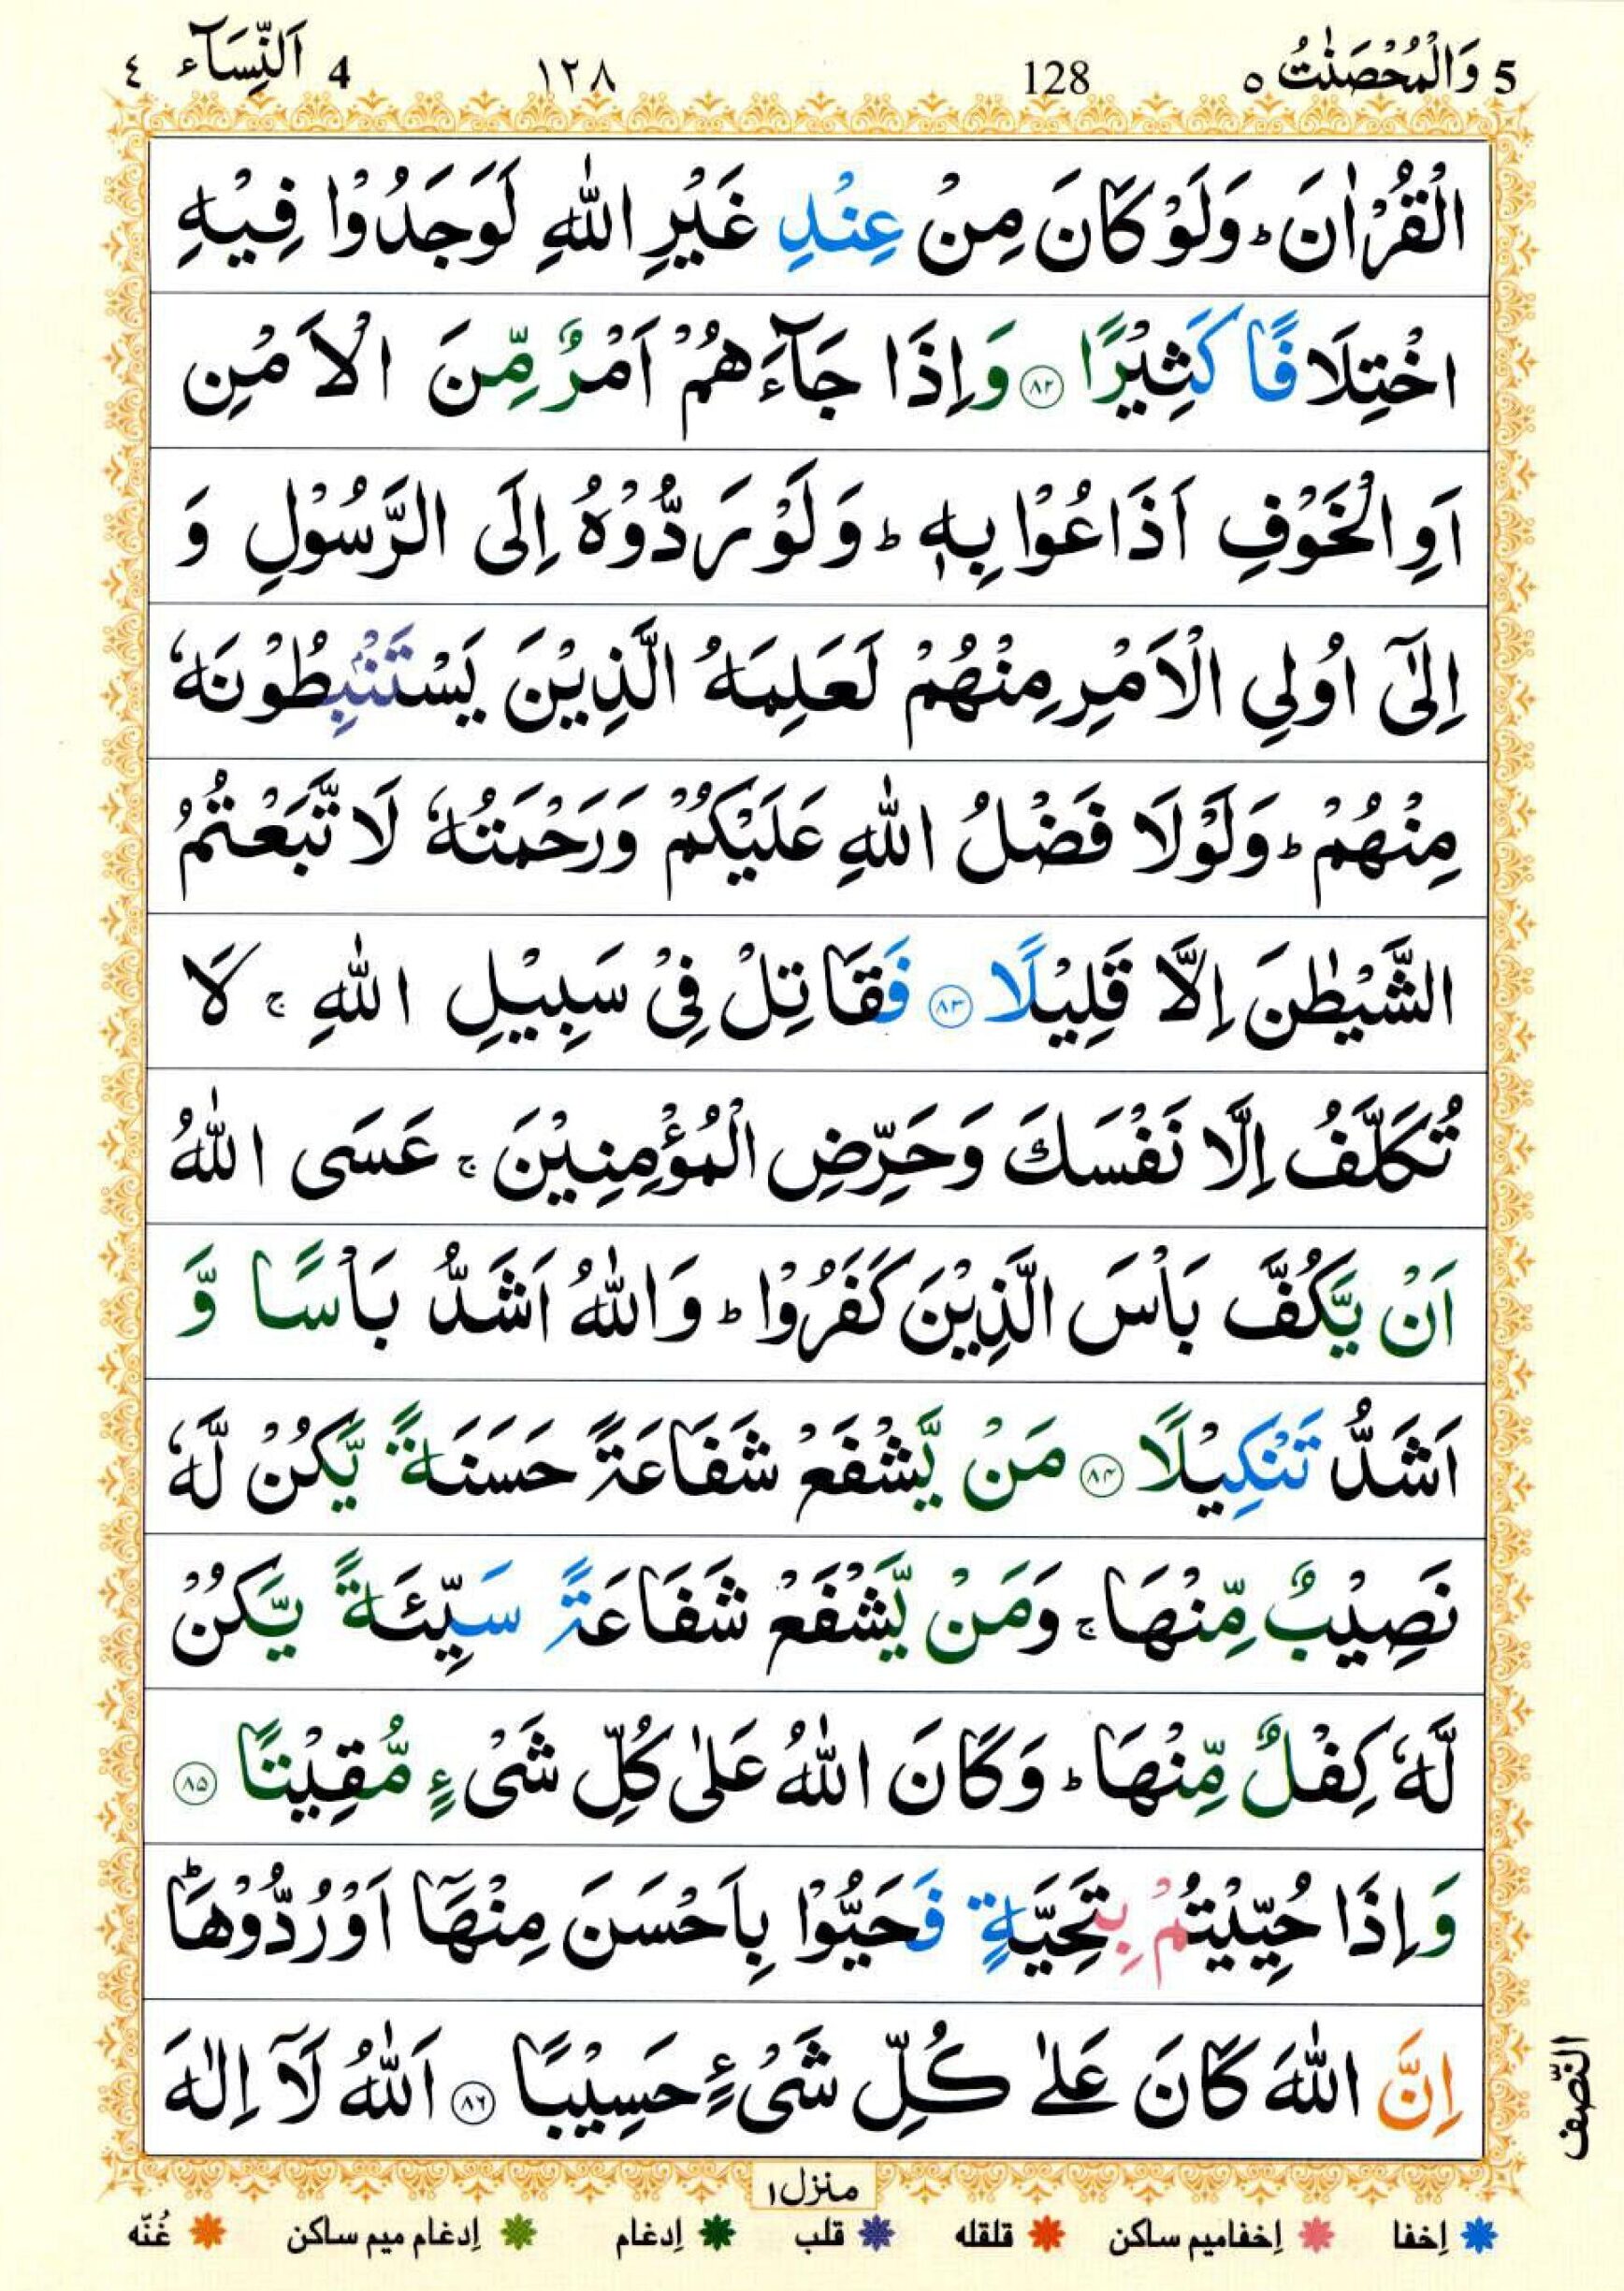 5 وَالْمُحْصَنٰتُ ٥ 128 ١٢٨ 4 اَلنِّسَآء ٤
الْقُرْاٰنَ ؕ وَلَوْ كَانَ مِنْ عِنْدِ غَيْرِ اللّٰهِ لَوَجَدُوْا فِيْهِ
اخْتِلَافًا كَثِيْرًا ۝۸۲ وَاِذَا جَآءَهُمْ اَمْرٌ مِّنَ الْاَمْنِ
اَوِ الْخَوْفِ اَذَاعُوْا بِهٖ ؕ وَلَوْ رَدُّوْهُ اِلَى الرَّسُوْلِ وَ
اِلٰٓى اُولِي الْاَمْرِ مِنْهُمْ لَعَلِمَهُ الَّذِيْنَ يَسْتَنْۢبِطُوْنَهٗ
مِنْهُمْ ؕ وَلَوْلَا فَضْلُ اللّٰهِ عَلَيْكُمْ وَرَحْمَتُهٗ لَاتَّبَعْتُمُ
الشَّيْطٰنَ اِلَّا قَلِيْلًا ۝۸۳ فَقَاتِلْ فِيْ سَبِيْلِ اللّٰهِ ۚ لَا
تُكَلَّفُ اِلَّا نَفْسَكَ وَحَرِّضِ الْمُؤْمِنِيْنَ ۚ عَسَى اللّٰهُ
اَنْ يَّكُفَّ بَاْسَ الَّذِيْنَ كَفَرُوْا ؕ وَاللّٰهُ اَشَدُّ بَاْسًا وَّ
اَشَدُّ تَنْكِيْلًا ۝۸۴ مَنْ يَّشْفَعْ شَفَاعَةً حَسَنَةً يَّكُنْ لَّهٗ
نَصِيْبٌ مِّنْهَا ۚ وَمَنْ يَّشْفَعْ شَفَاعَةً سَيِّئَةً يَّكُنْ
لَّهٗ كِفْلٌ مِّنْهَا ؕ وَكَانَ اللّٰهُ عَلٰى كُلِّ شَيْءٍ مُّقِيْتًا ۝۸۵
وَاِذَا حُيِّيْتُمْ بِتَحِيَّةٍ فَحَيُّوْا بِاَحْسَنَ مِنْهَآ اَوْ رُدُّوْهَا ؕ
اِنَّ اللّٰهَ كَانَ عَلٰى كُلِّ شَيْءٍ حَسِيْبًا ۝۸۶ اَللّٰهُ لَآ اِلٰهَ
النّصف
منزل۱
اِخفا اِخفامیم ساکن قلقله قلب اِدغام اِدغام میم ساکن غُنّه